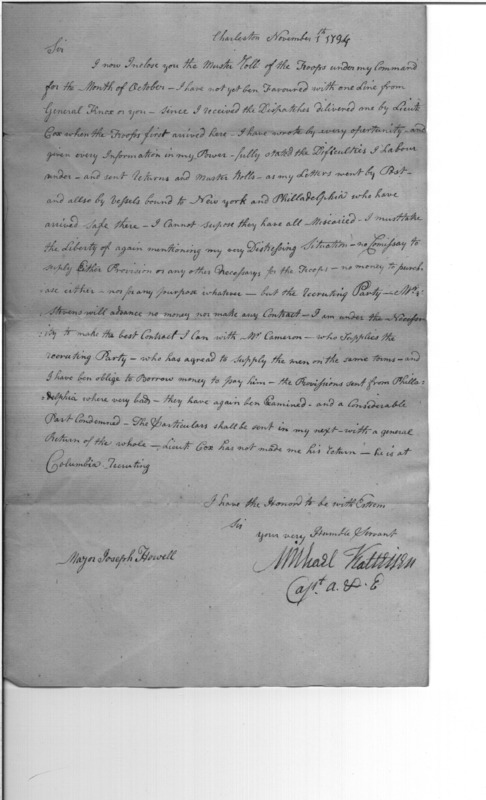 Charleston November 1st 1794
Sir
I now Inclose you the Muster Roll of the Troops under my Command
for the Month of October - I have not yet ben Favoured with one Line from
General Knox or you - since I received the Dispatches delivered one by Lieut.
Cox when the Troops first arrived here - I have wrote by every opertunity - and
given every Information in my Power - fully stated the Difficulties I Labour
under - and sent Returns and Muster Rolls - as my Letters went by Post -
and allso by vessels bound to New york and Philladelphia who have
arrived safe there - I Cannot supose they have all Miscaried - I must take
the Liberty of again mentioning my very Distressing Situation - no Comissary to
suply Either Provision or any other Necessarys for the Troops - no money to purch-
ase either - nor for any purpose whatever - but the Recruiting Party - Mr.
Stevens will advance no money nor make any Contract - I am under the Necess-
ity to make the best Contract I Can with Mr Cameron - who Supplies the
recruiting Party - who has agread to supply the men on the same terms - and
I have ben oblige to Borrow money to pay him - the Provissions sent from Philla-
delphia where very bad - they have again ben Examined - and a Considerable
Part Condemned - The Particulars shall be sent in my next - with a general
Return of the whole - Lieut. Cox has not made me his return - he is at
Columbia Recruiting
I have the Honour to be with Esteem
Sir
your very Humble Servant
Michael Kalteisen
Capt. A. & E
Major Joseph Howell